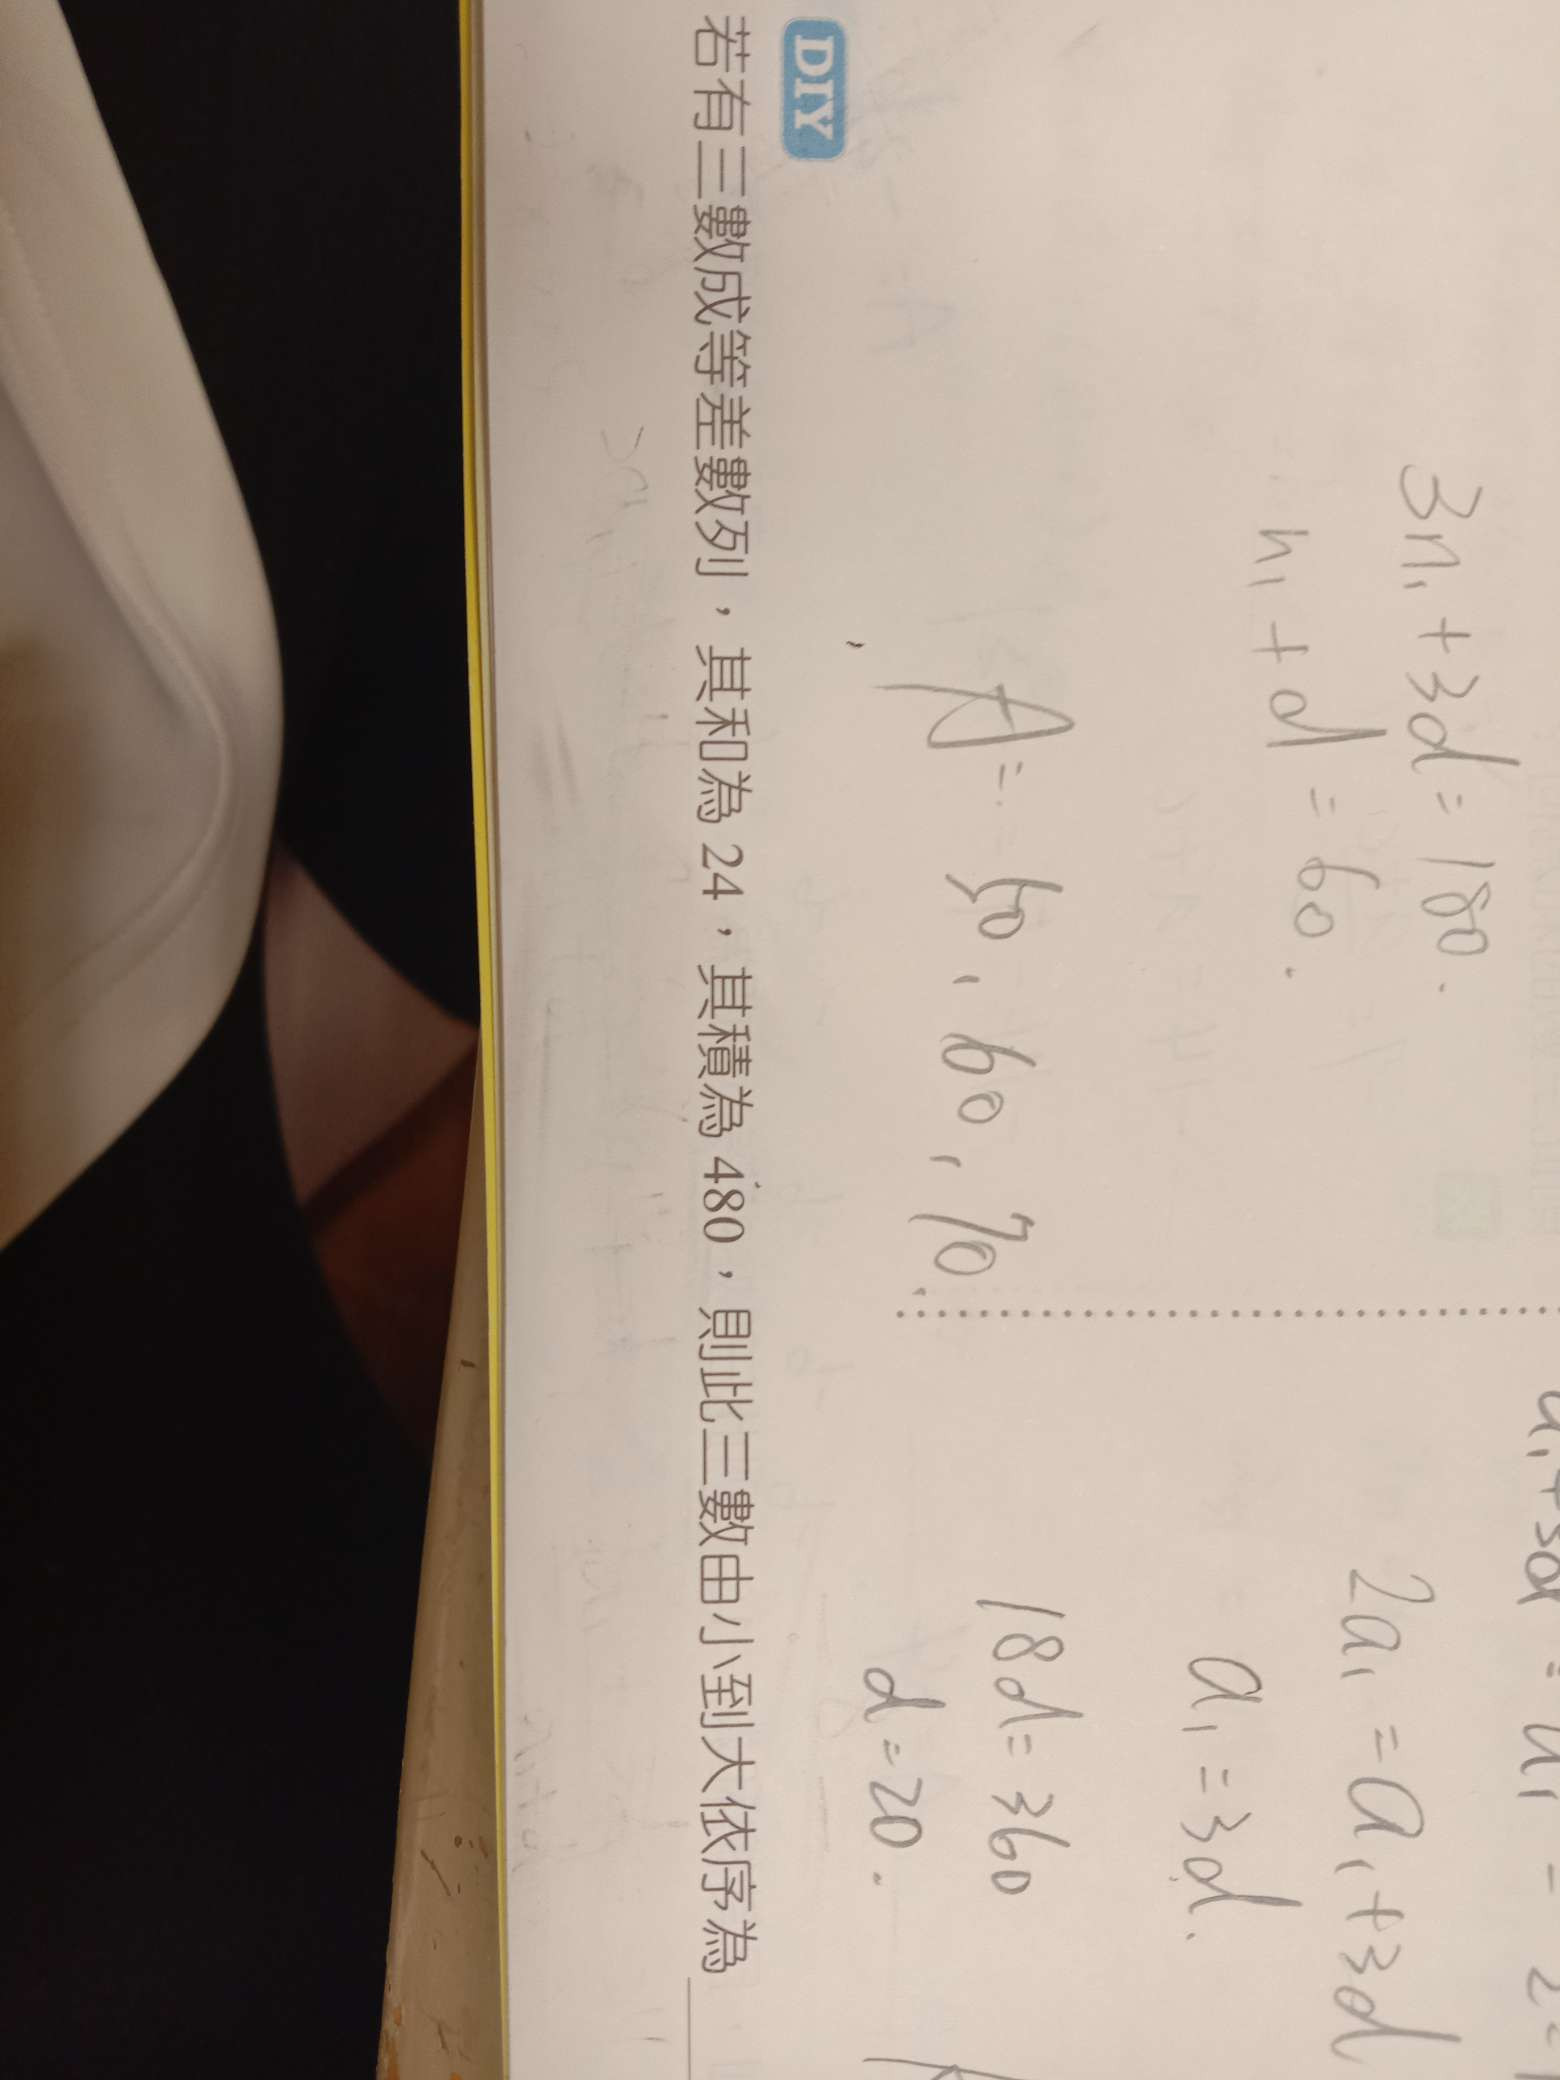 3n₁+3d=180.
n₁+d=60.
A= 50, 60, 70.
2a₁=a₁+3d
a₁=3d.
18d=360
d=20.
DIY
若有三數成等差數列,其和為 24,其積為 480,則此三數由小到大依序為